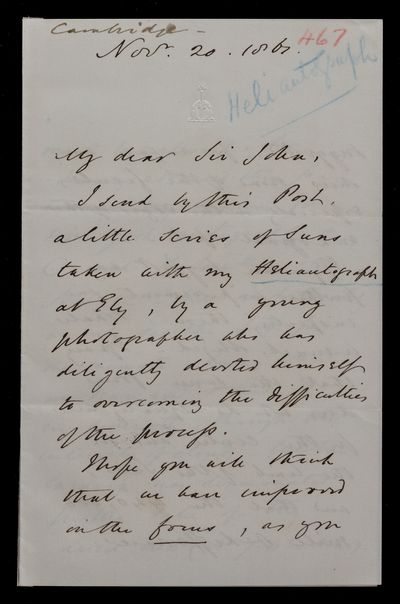 Cambridge -
Nov. 20. 1861.
467
Heliautograph
My dear Sir John,
I send by this Post,
a little Series of Suns
taken with my Heliautograph
at Ely, by a young
photographer who has
diligently devoted himself
to overcoming the difficulties
of the process.
I hope you will think
that we have improved
in the focus, as you